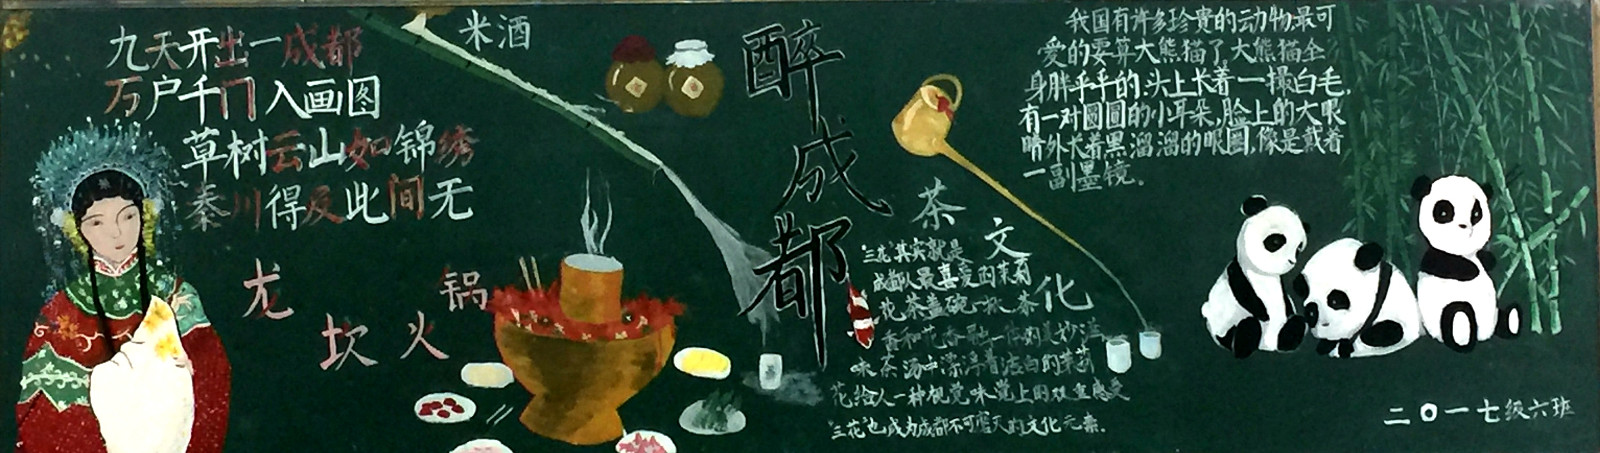 九天开出一成都
万户千门入画图
草树云山如锦绣
秦川得及此间无
米酒
龙
坎火
锅
醉成都
茶
文
化
三花其实就是
成都人最喜爱的茉莉
花茶盖碗一杯茶
香和花香融一体的美妙滋
味茶汤中漂浮着洁白的茉莉
花给人一种视觉味觉上的双重感受
"三花"也成为成都不可磨灭的文化元素.
我国有许多珍贵的动物,最可
爱的要算大熊猫了,大熊猫全
身胖乎乎的,头上长着一撮白毛,
有一对圆圆的小耳朵,脸上的大眼
睛外长着黑溜溜的眼圈,像是戴着
一副墨镜.
二〇一七级六班